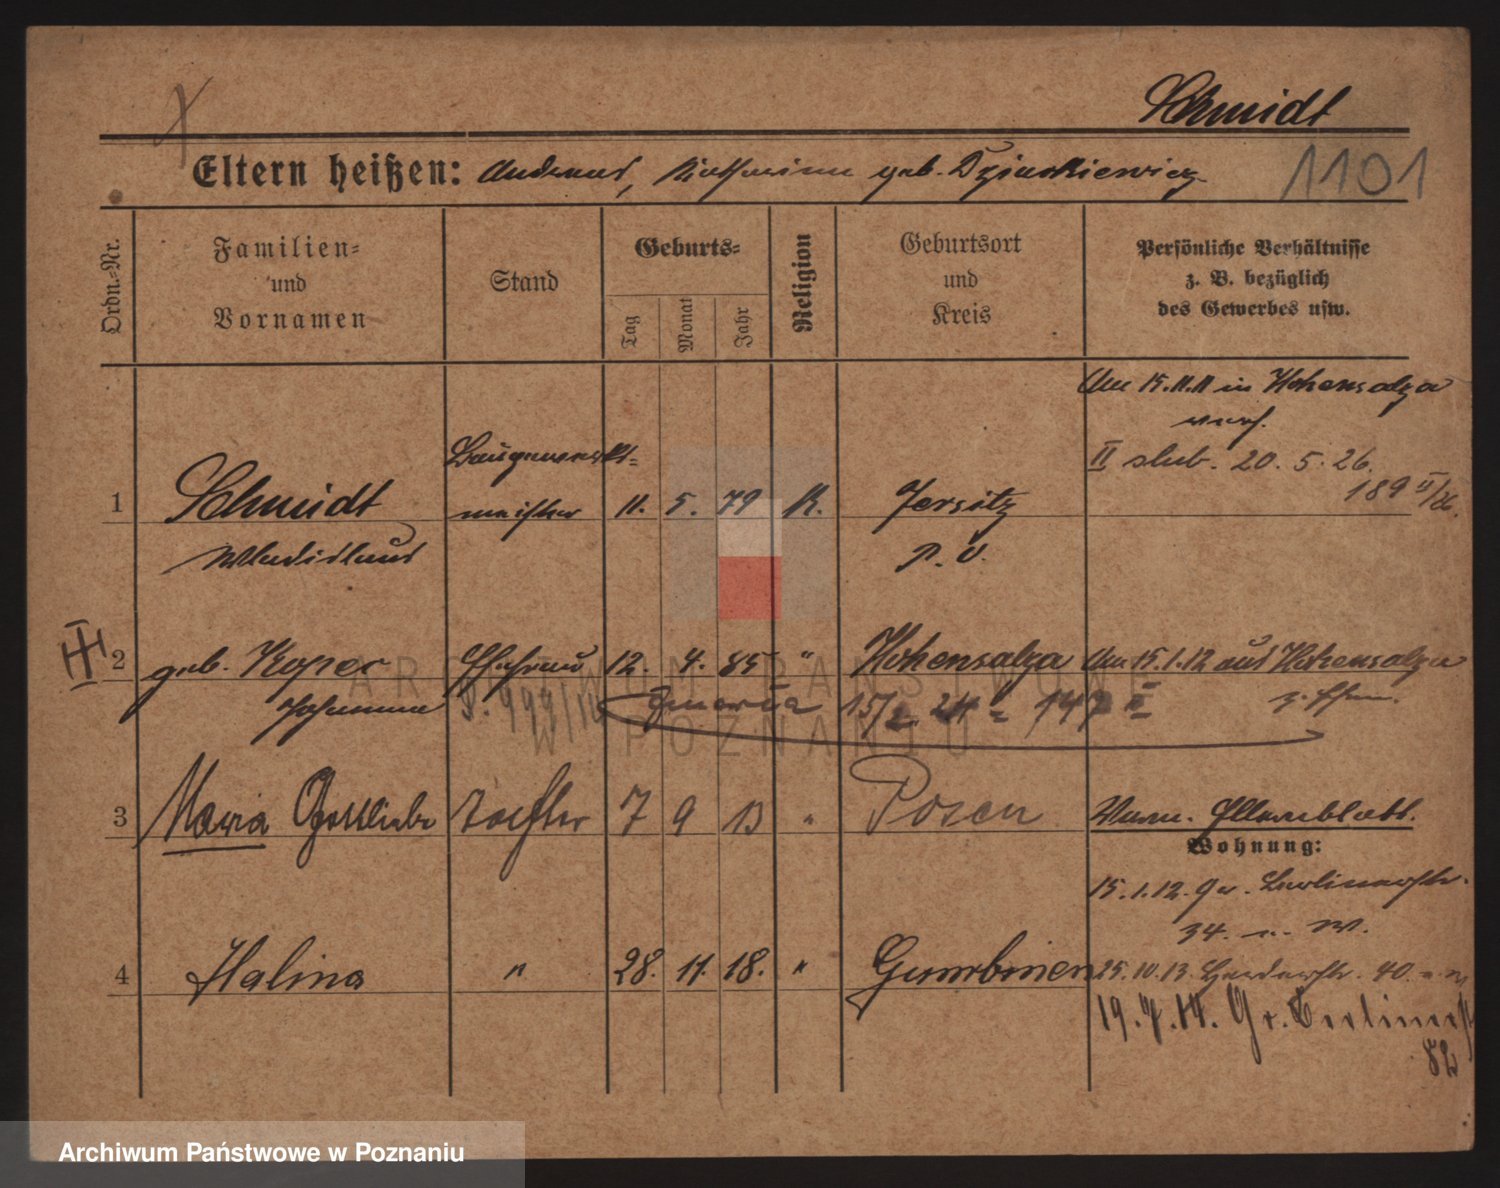 Schmidt
Eltern heißen: Andreas, Katharina geb. Dziurkiewicz
1101
Ordn.-Nr.
Familien-
und
Vornamen
Stand
Geburts-
Tag
Monat
Jahr
Religion
Geburtsort
und
Kreis
Persönliche Verhältnisse
z. B. bezüglich
des Gewerbes usw.
Am 15.11.11 in Hohensalza
verh.
II slub. 20. 5. 26.
189 II/26.
1 Schmidt Baugewerks- 11. 5. 79 K. Jersitz
Wladislaus meister P. O.
2 geb. Koper Ehefrau 12. 4. 85 " Hohensalza Am 15.1.12 aus Hohensalza
Johanna z. Ehem.
Zmarła 15/2 24 147 II
3 Maria Gottliebe Tochter 7 9 13 " Posen
Wohnung:
15.1.12. Gr. Berlinerstr.
34. W.
4 Halina " 28. 11. 18. " Gumbinen
25.10.13. 40.
19.7.14. Gr. Berlinerst
82
ARCHIWUM PAŃSTWOWE
W POZNANIU
Archiwum Państwowe w Poznaniu